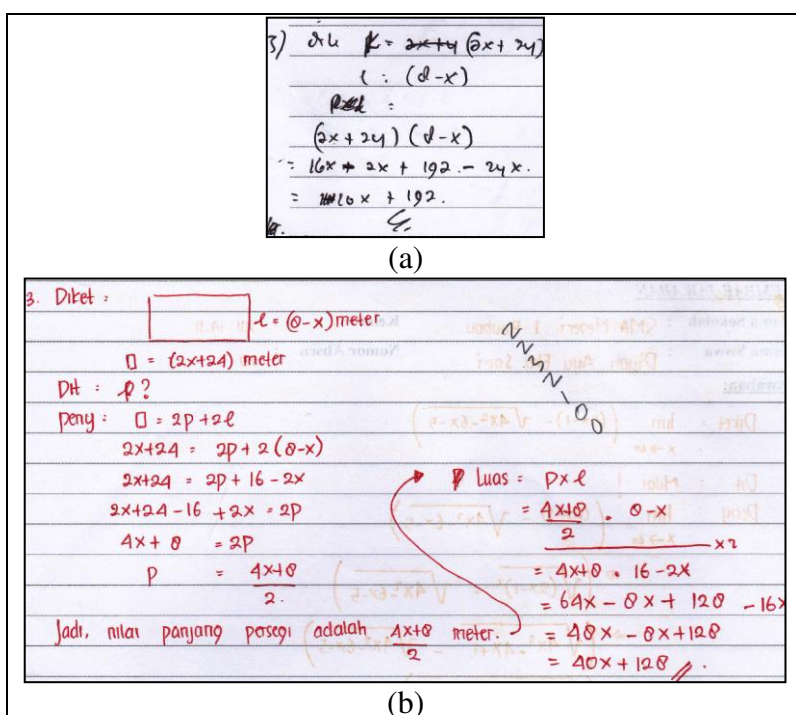 3) dik p = 2x+4 (2x+24)
l : (8-x)
pxl =
(2x+24) (8-x)
= 16x + 2x + 192 - 24x.
= 10x + 192.
(a)
3. Diket :
l = (8-x) meter
□ = (2x+24) meter
Dit : p?
peny : □ = 2p+2l
2x+24 = 2p + 2 (8-x)
2x+24 = 2p + 16 - 2x
2x+24-16 +2x = 2p
4x + 8 = 2p
p = 4x+8/2.
Jadi, nilai panjang persegi adalah 4x+8/2 meter.
Luas = p x l
= 4x+8/2 . 8-x
x2
= 4x+8 . 16-2x
= 64x - 8x + 128 - 16x
= 48x - 8x + 128
= 40x + 128 //.
(b)